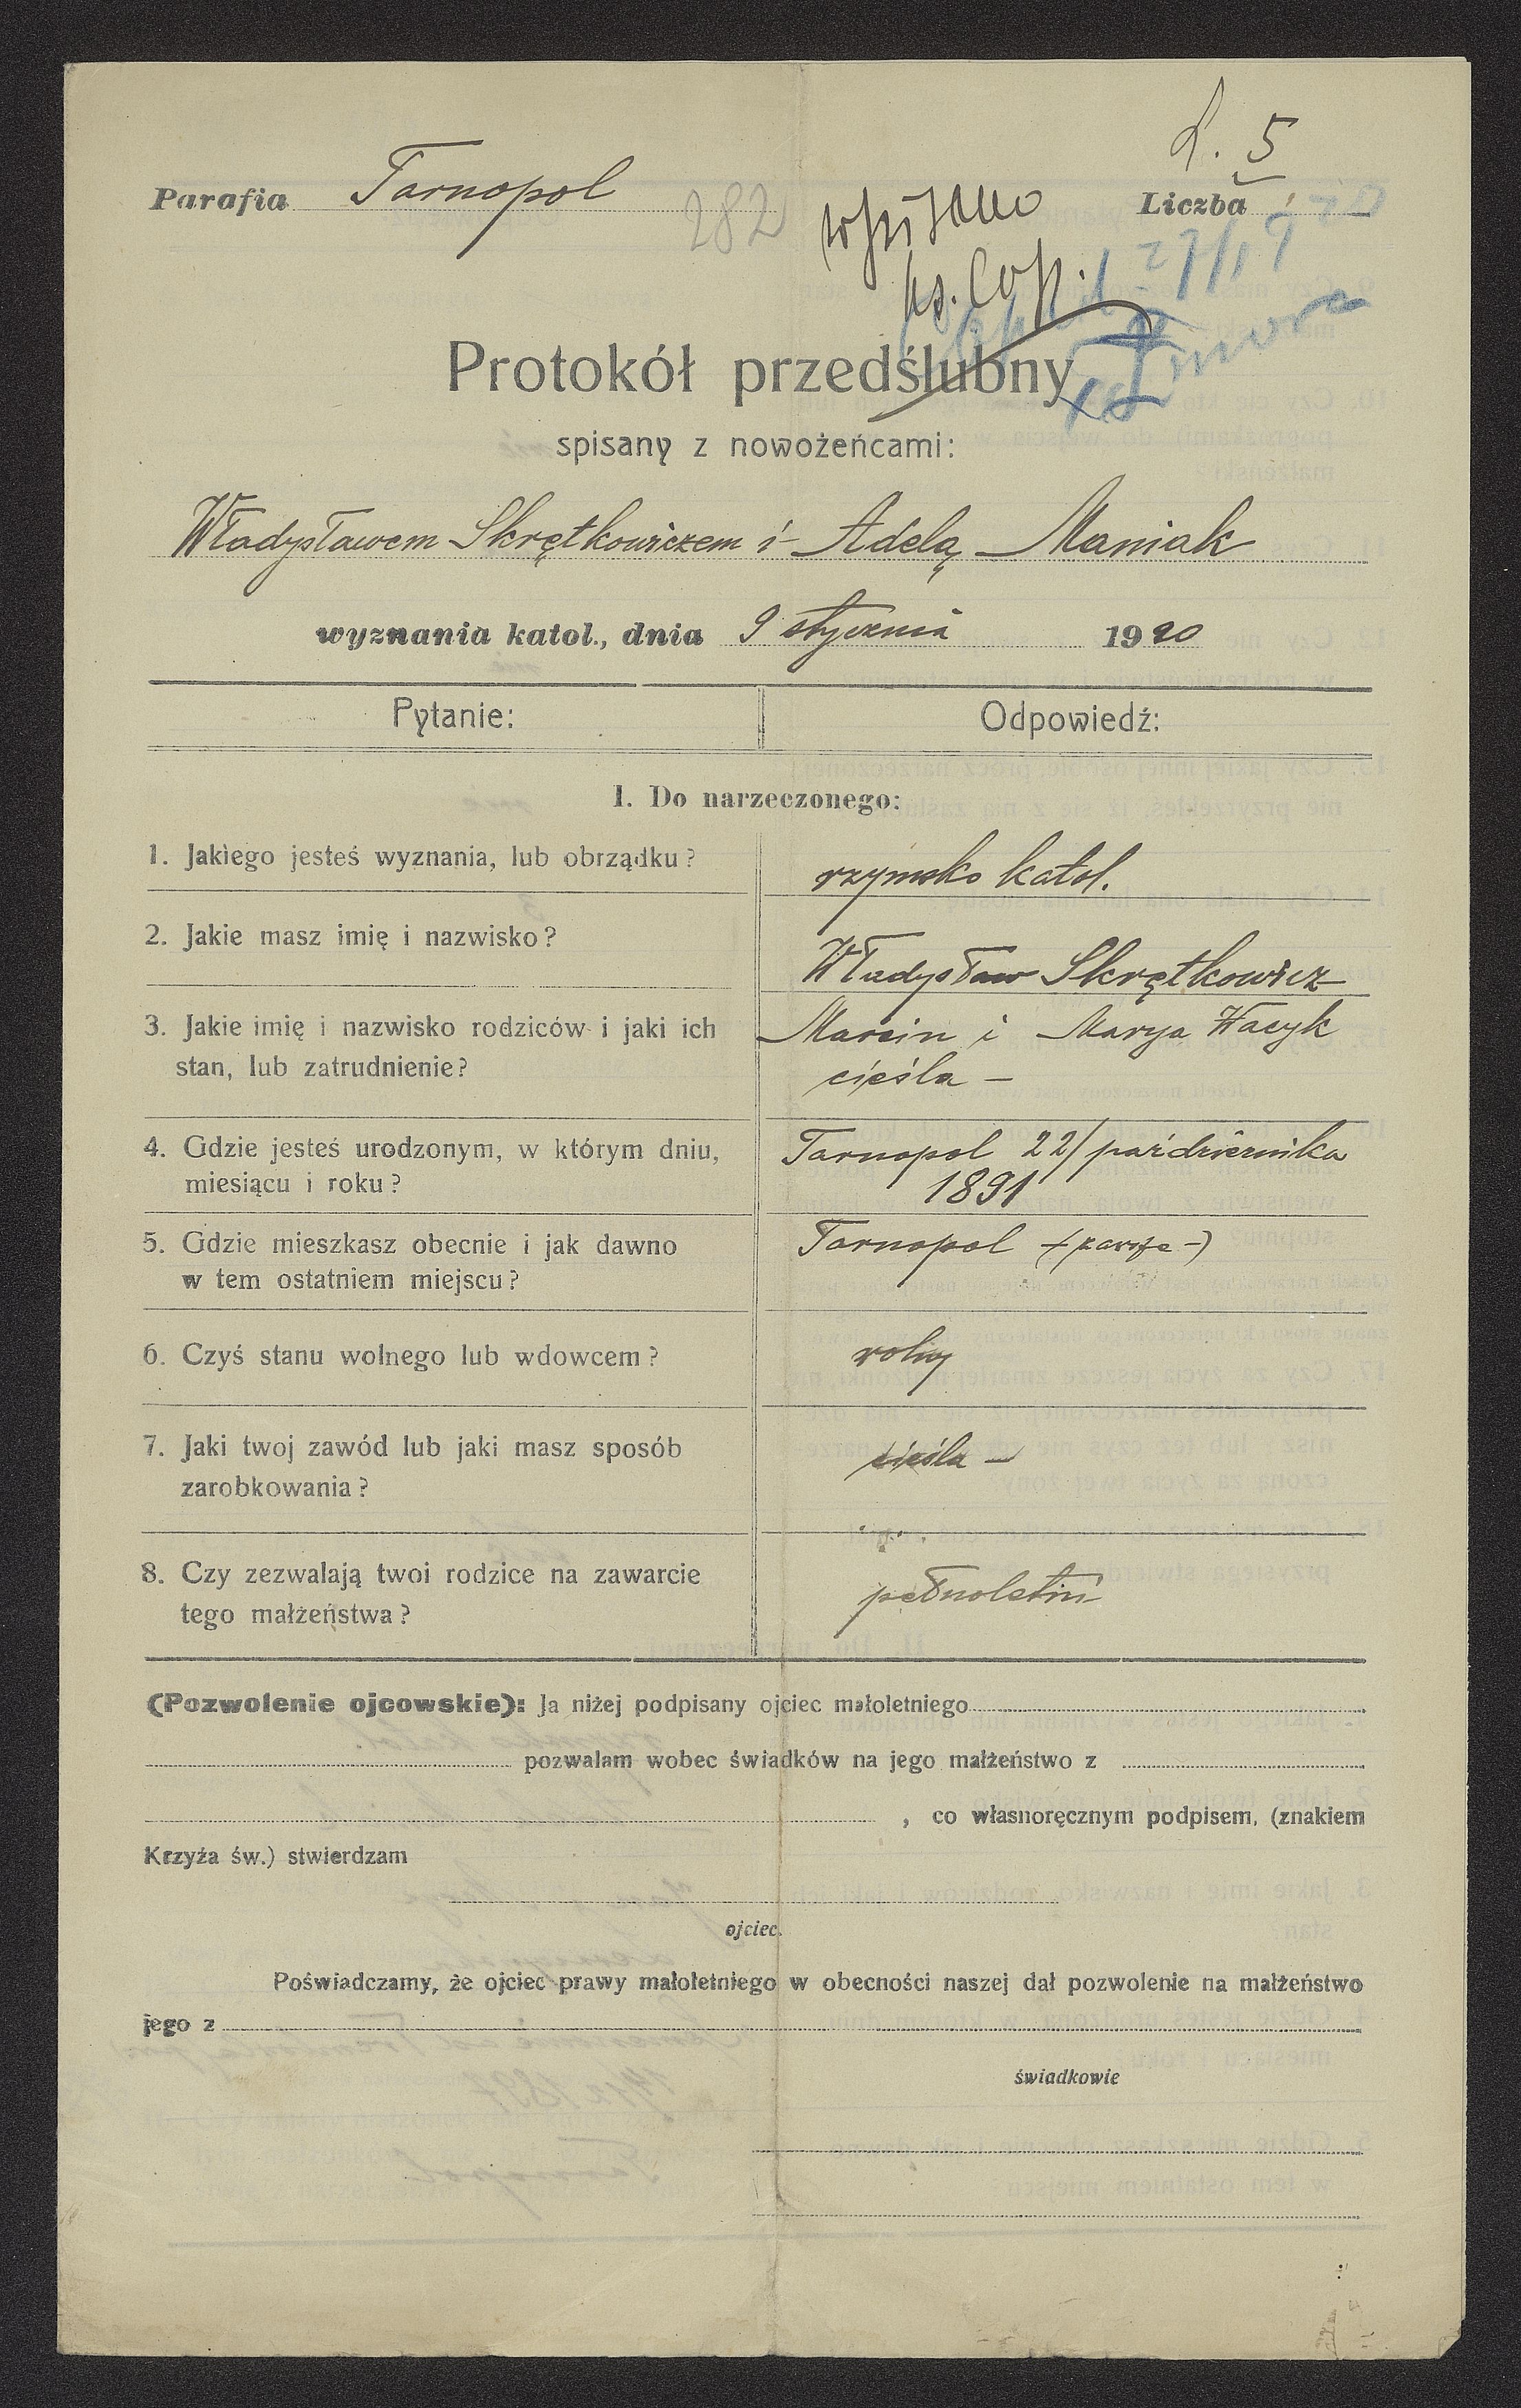 L. 5
Parafia Tarnopol 282 wpisano Liczba
ks. Cop. 27/1 19
Protokół przedślubny
spisany z nowożeńcami:
Władysławem Skrętkowiczem i Adelą Maniak
wyznania katol., dnia 9 stycznia 1920
Pytanie: Odpowiedź:
I. Do narzeczonego:
1. Jakiego jesteś wyznania, lub obrządku? rzymsko katol.
2. Jakie masz imię i nazwisko? Władysław Skrętkowicz
3. Jakie imię i nazwisko rodziców i jaki ich Marcin i Marya Wacyk
stan, lub zatrudnienie? cieśla –
4. Gdzie jesteś urodzonym, w którym dniu, Tarnopol 22/ października
miesiącu i roku? 1891
5. Gdzie mieszkasz obecnie i jak dawno Tarnopol
w tem ostatniem miejscu?
6. Czyś stanu wolnego lub wdowcem? wolny
7. Jaki twoj zawód lub jaki masz sposób cieśla –
zarobkowania?
8. Czy zezwalają twoi rodzice na zawarcie pełnoletni
tego małżeństwa?
(Pozwolenie ojcowskie): Ja niżej podpisany ojciec małoletniego
pozwalam wobec świadków na jego małżeństwo z
, co własnoręcznym podpisem, (znakiem
Krzyża św.) stwierdzam
ojciec.
Poświadczamy, że ojciec prawy małoletniego w obecności naszej dał pozwolenie na małżeństwo
jego z
świadkowie